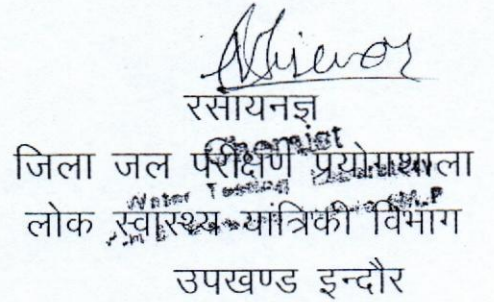 रसायनज्ञ
Chemist
जिला जल परीक्षण प्रयोगशाला
Water Testing
लोक स्वास्थ्य यांत्रिकी विभाग
उपखण्ड इन्दौर